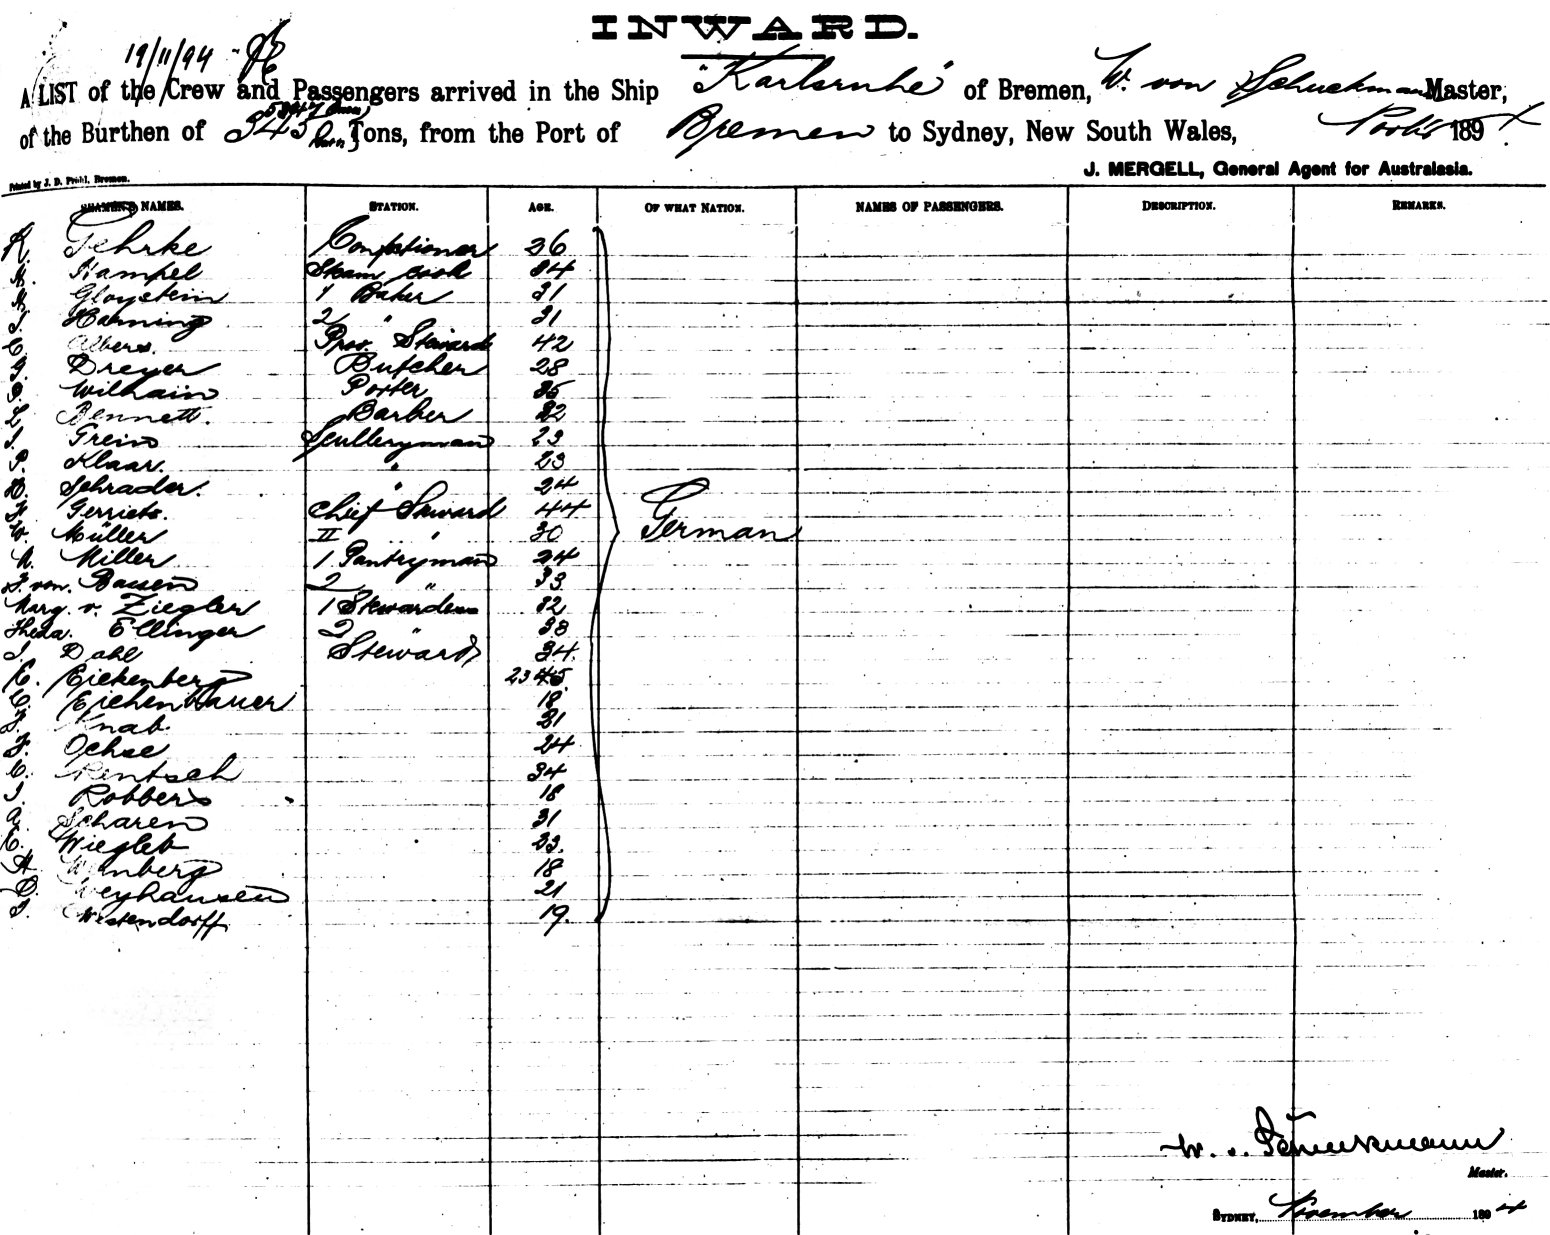 INWARD.
19/11/94
A LIST of the Crew and Passengers arrived in the Ship "Karlsruhe" of Bremen, W. von Schuckmann Master,
of the Burthen of Tons, from the Port of Bremen to Sydney, New South Wales, 1894
J. MERGELL, General Agent for Australasia.
Printed by J. D. Prühl, Bremen.
SEAMEN'S NAMES. STATION. AGE. OF WHAT NATION. NAMES OF PASSENGERS. DESCRIPTION. REMARKS.
R. Gehrke 36
Hampel Steam cook 34
Gloystein 1 Baker 31
Harning 2 " 31
C. Albers. Prov. Steward 42
Dreyer Butcher 28
Wilhain Porter 35
Bennett. Barber 32
Grein Sculleryman 23
Klaar. " 23
Schrader. " 24
Gerriets. Chief Steward 44
W. Müller II " 30 German
Miller 1 Pantryman 24
F. von Bassen 2 " 33
Marg. v. Ziegler 1 Stewardess 32
Theda. Ellinger 2 " 38
J. Dahl Steward 34.
E. Eickenberg 23
C. Eichenhauer 18
Knab 31
F. Ochse 24
C. Rentsch 34
J. Robbers 18
Scharen 31
E. Wiegleb 23.
Winberg 18
Weyhausen 21
J. Westendorff 19.
W. v. Schuckmann
Master.
SYDNEY, November 1894